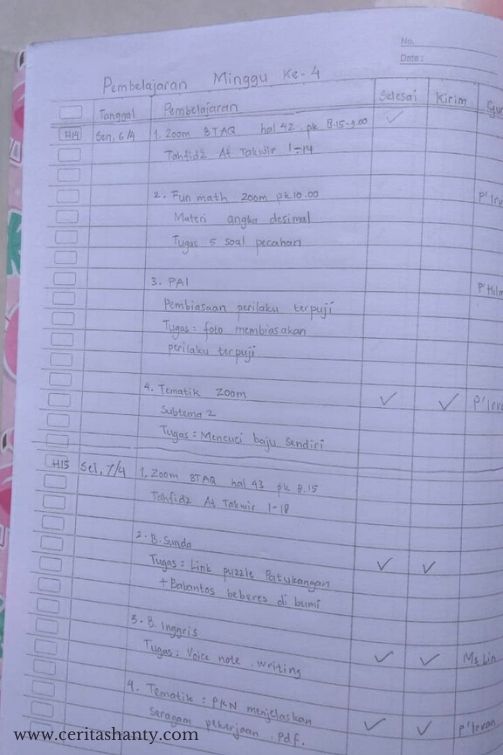 No.
Date:
Pembelajaran Minggu Ke-4
Tanggal Pembelajaran Selesai Kirim
H14 Sen, 6/4 1. Zoom BTAQ hal 42 pk 8.15-9.00
Tahfidz At Takwir 1-14
2. Fun math Zoom pk 10.00
Materi angka desimal
Tugas 5 soal pecahan
3. PAI
Pembiasaan perilaku terpuji
Tugas: foto membiasakan
perilaku terpuji
4. Tematik Zoom ✓ ✓ P'Irvan
Subtema 2
Tugas: Mencuci baju sendiri
H15 Sel, 7/4 1. Zoom BTAQ hal 43 pk 8.15
Tahfidz At Takwir 1-18
2. B. Sunda
Tugas: Link puzzle Patukangan ✓ ✓
+ Babantos beberes di bumi
3. B. Inggris
Tugas: Voice note. writing ✓ ✓ Ms Lin
4. Tematik: PKN menjelaskan
seragam pekerjaan. Pdf. ✓ ✓ P'Irvan
www.ceritashanty.com